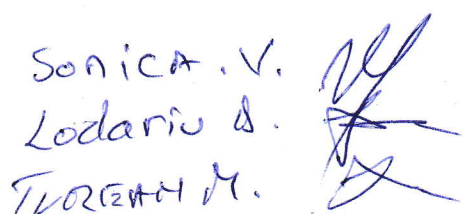 Sonica. V.
Lodariu D.
TUREAN M.